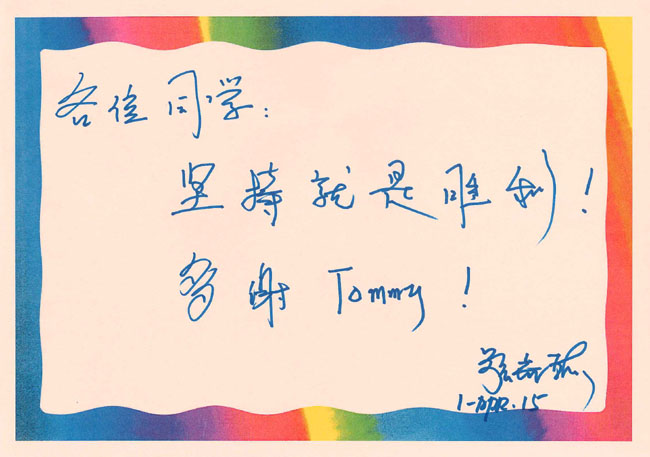 各位同学：
坚持就是胜利！
多谢 Tommy！
1-APR.15